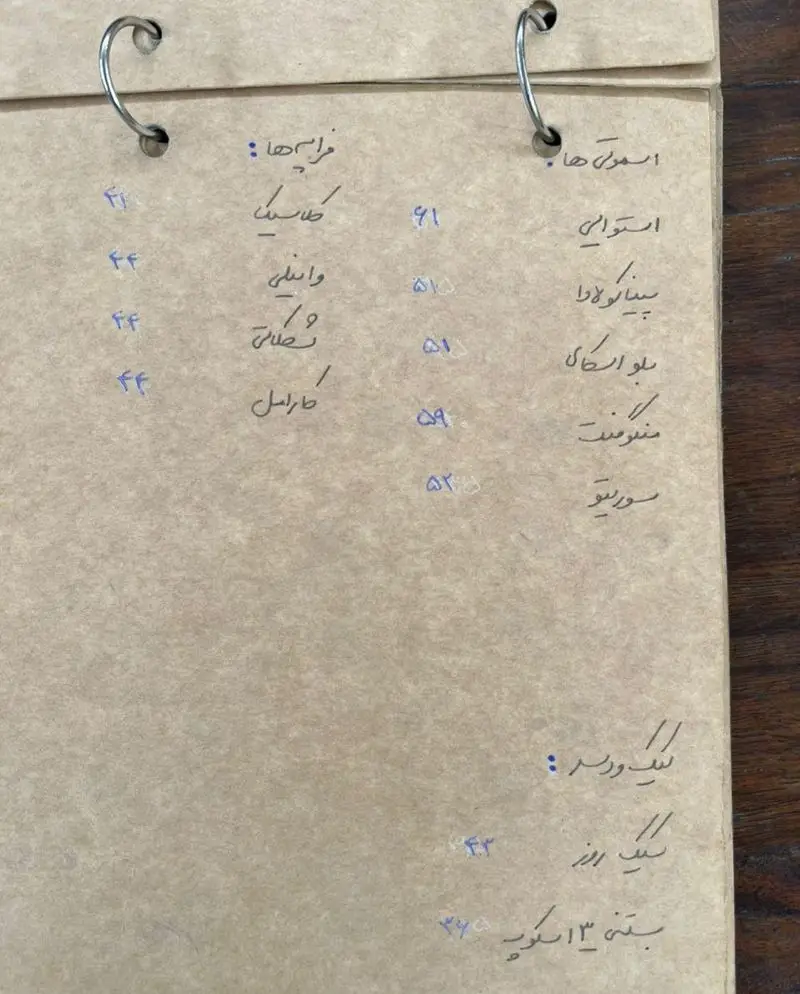 اسموتی ها:
استوایی ۶۱
پیناکولادا ۵۱
بلو اسکای ۵۱
منگومنت ۵۹
سوربیتو ۵۲
فراپه ها:
کلاسیک ۴۱
وانیلی ۴۴
شکلاتی ۴۴
کارامل ۴۴
کیک و دسر:
کیک روز ۴۳
بستنی ۳ اسکوپ ۳۶